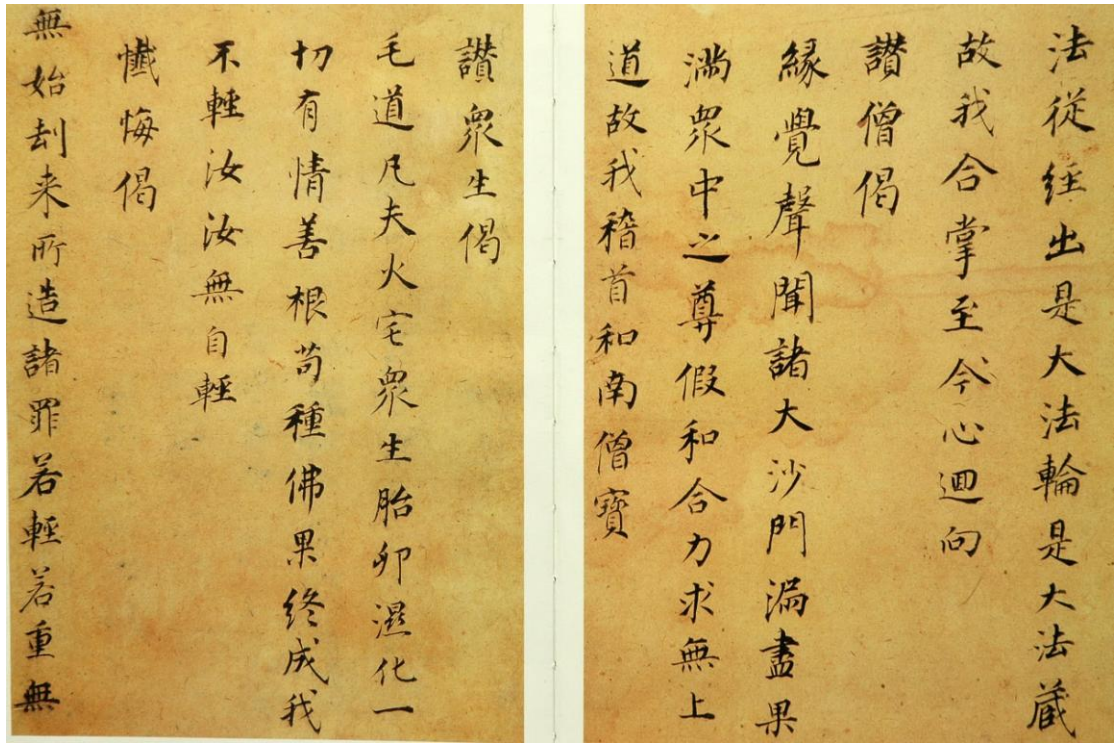 法從經出是大法輪是大法藏
故我合掌至今心迴向
讃僧偈
緣覺聲聞諸大沙門漏盡果
滿衆中之尊假和合力求無上
道故我稽首和南僧寶
讃衆生偈
毛道凡夫火宅衆生胎卵濕化一
切有情善根苟種佛果終成我
不輕汝汝無自輕
懺悔偈
無始刦来所造諸罪若輕若重無